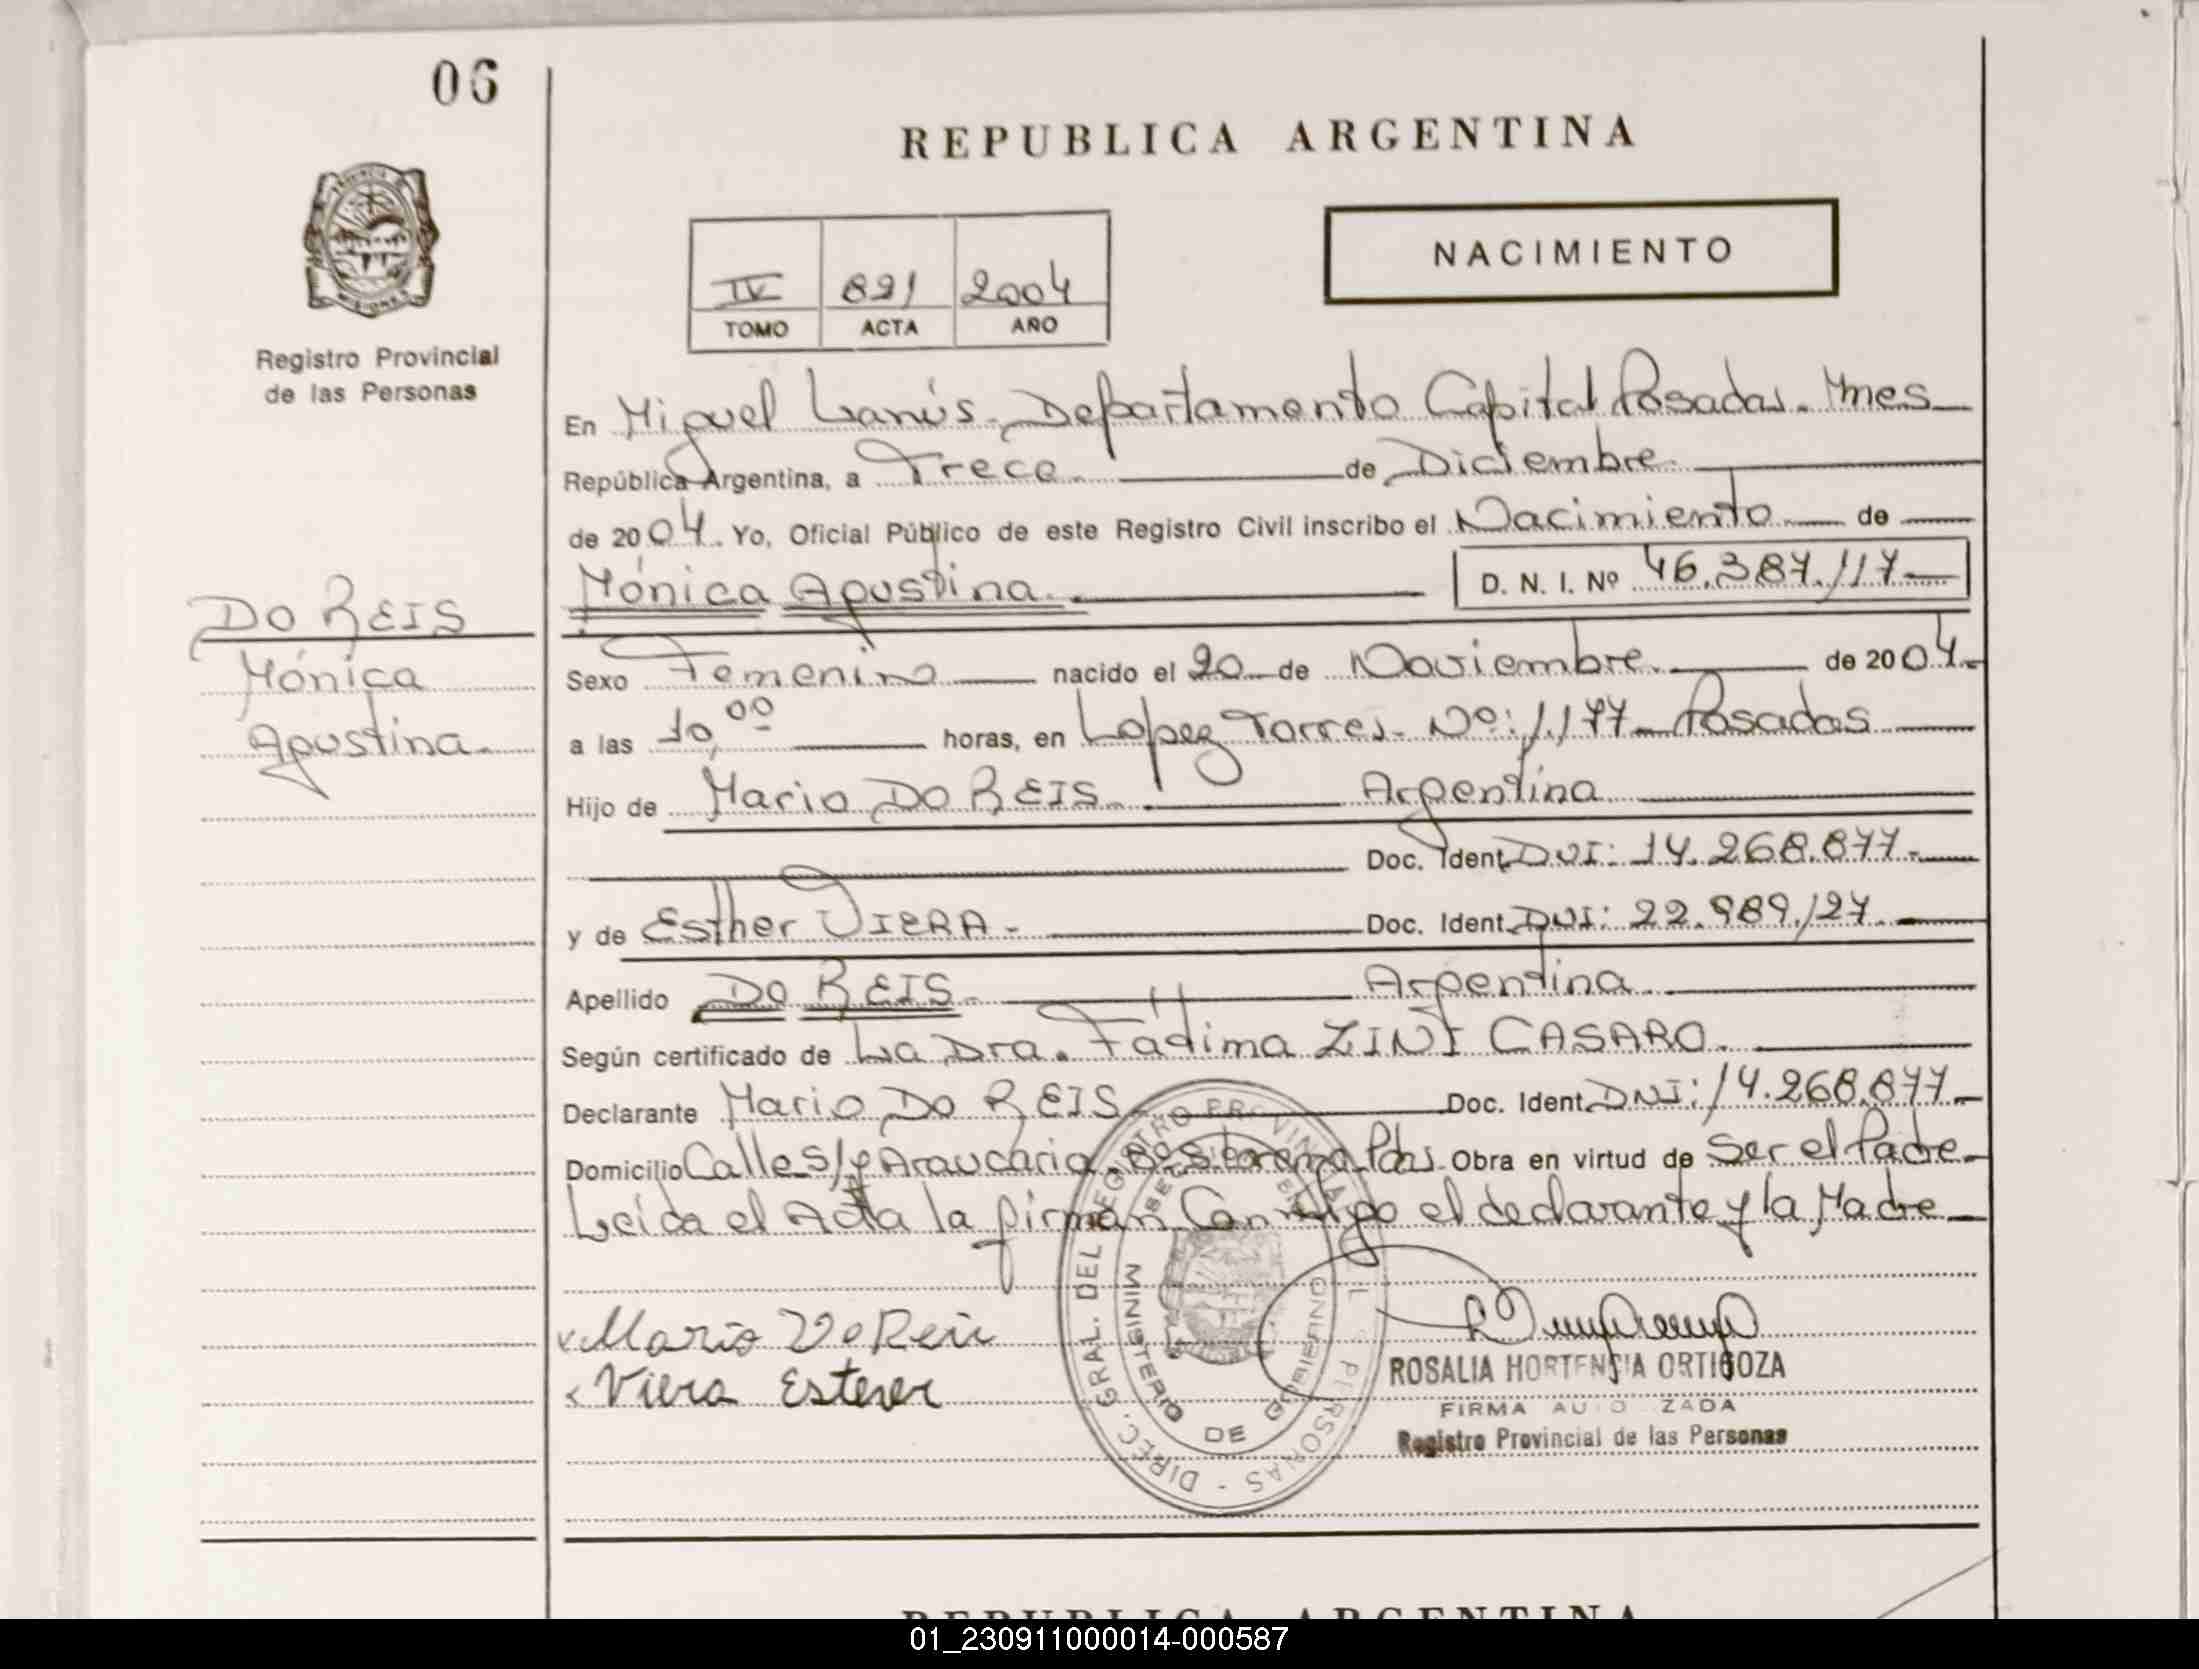 06
REPUBLICA ARGENTINA
NACIMIENTO
IV 821 2004
TOMO ACTA AÑO
Registro Provincial
de las Personas
En Miguel Lanús. Departamento Capital Posadas. Mnes
República Argentina, a Trece de Diciembre.
de 2004. Yo, Oficial Público de este Registro Civil inscribo el Nacimiento de
Mónica Agustina. D. N. I. Nº 46.387.117
DO REIS
Mónica
Agustina.
Sexo Femenino nacido el 20 de Noviembre. de 2004.
a las 10,00 horas, en Lopez Torres. Nº: 1.177 Posadas
Hijo de Mario DO REIS. Argentina
Doc. Ident. DNI: 14.268.877.
y de Esther VIERA. Doc. Ident. DNI: 22.989.127.
Apellido DO REIS. Argentina
Según certificado de La Dra. Fátima ZINI CASARO.
Declarante Mario DO REIS Doc. Ident. DNI: 14.268.877.
Domicilio Calle S/Nº Araucaria. Pdas. Obra en virtud de Ser el Padre.
Leída el Acta la firman Conmigo el declarante y la Madre
Mario Do Reis
Viera Ester
DIREC. GRAL. DEL REGISTRO PROVINCIAL PERSONAS
MINISTERIO DE GOBIERNO
ROSALIA HORTENCIA ORTIGOZA
FIRMA AUTORIZADA
Registro Provincial de las Personas
REPUBLICA ARGENTINA
01_230911000014-000587